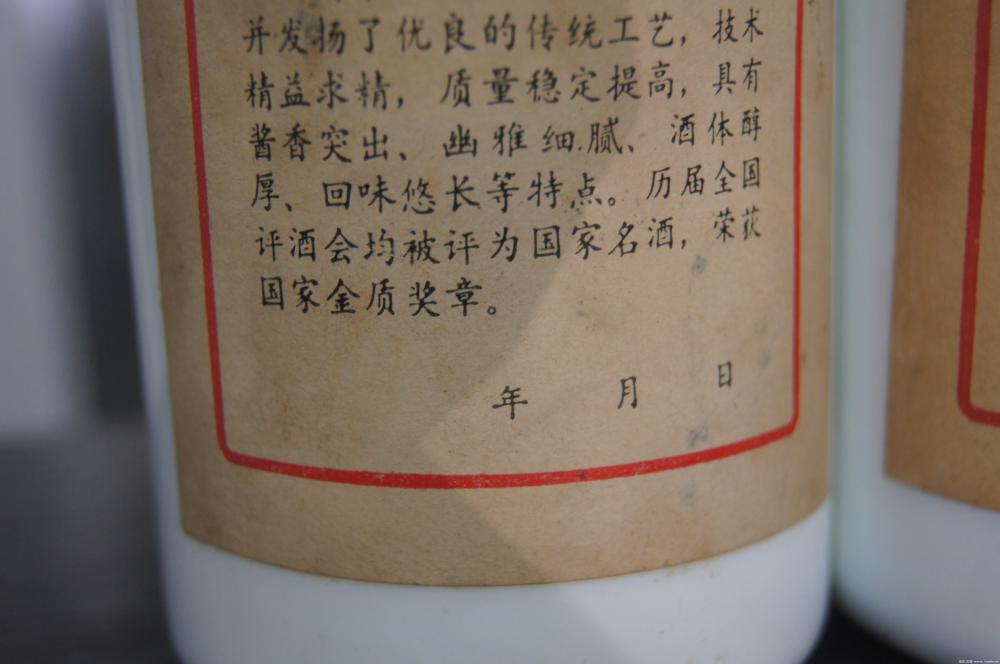 并发扬了优良的传统工艺，技术
精益求精，质量稳定提高，具有
酱香突出、幽雅细腻、酒体醇
厚、回味悠长等特点。历届全国
评酒会均被评为国家名酒，荣获
国家金质奖章。
年 月 日